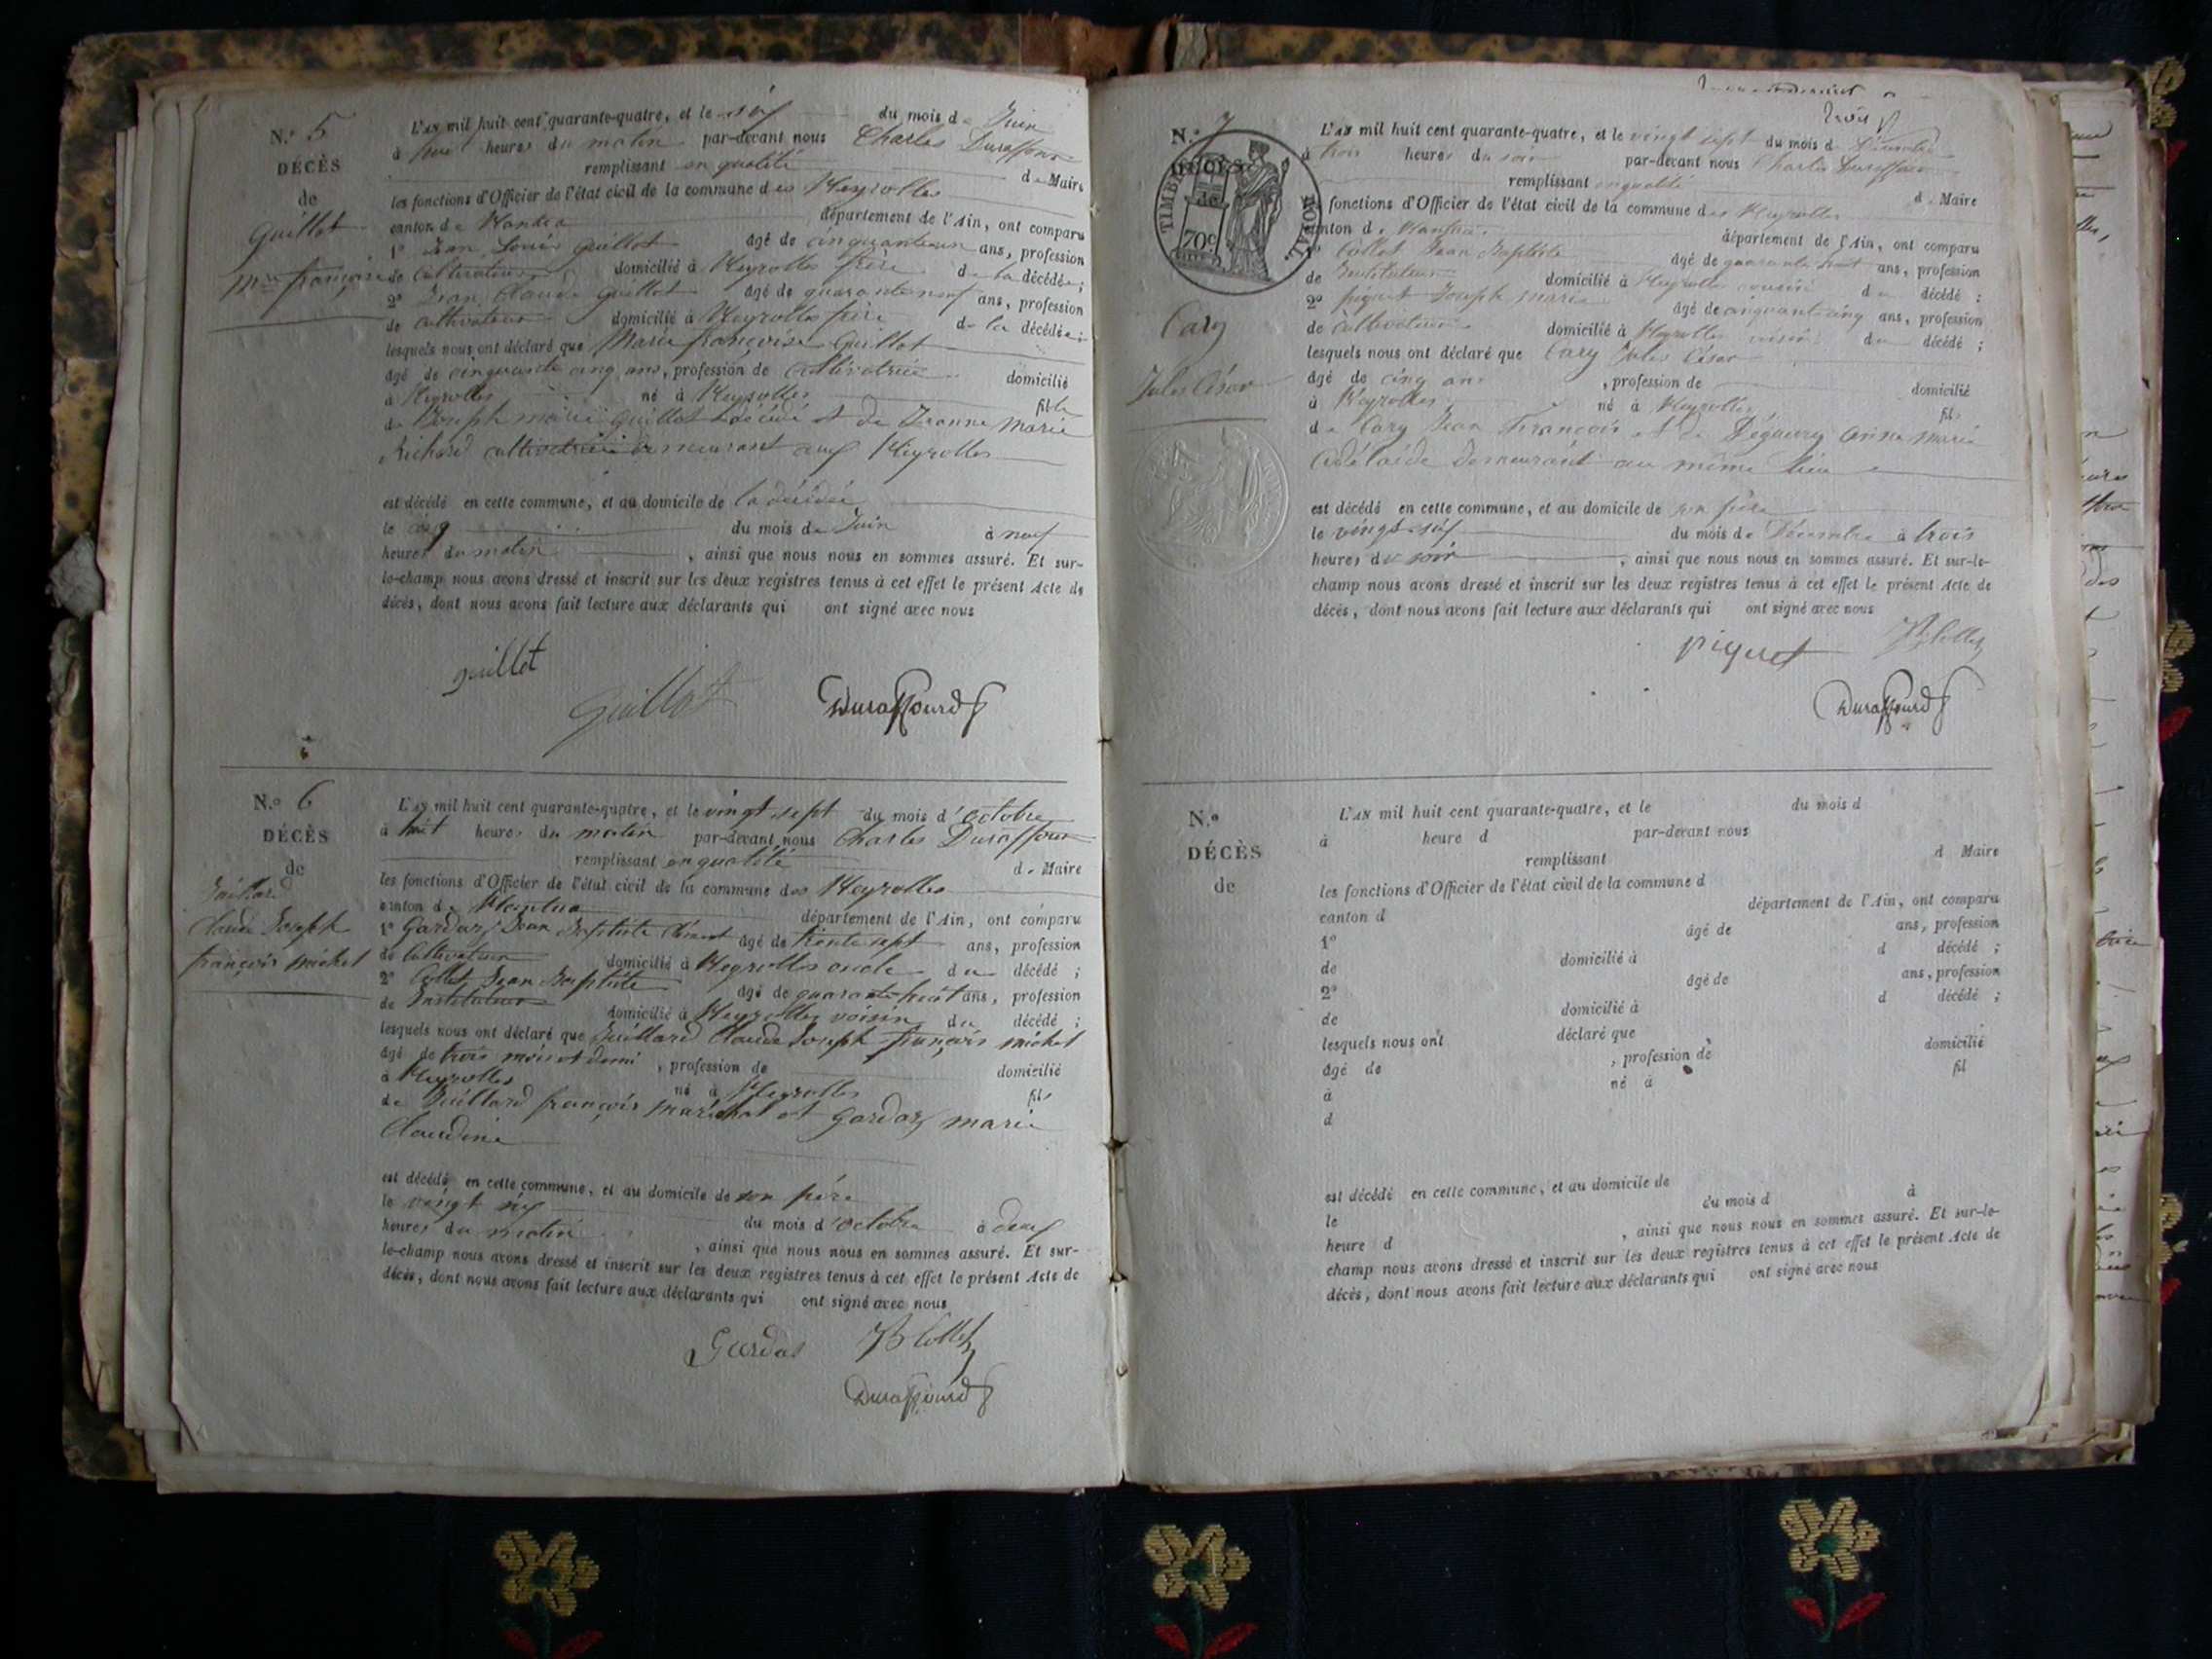 N.° 5
DÉCÈS
de
Guillot
M.ie françoise
L'AN mil huit cent quarante-quatre, et le six du mois de Juin
à heures du matin par-devant nous Charles Duraffour
remplissant en qualité de Maire
les fonctions d'Officier de l'état civil de la commune des Neyrolles
canton de Nantua département de l'Ain, ont comparu
1° Jean Louis Guillot âgé de cinquante un ans, profession
de cultivateur domicilié à Neyrolles frère de la décédée ;
2° Jean Claude Guillot âgé de quarante neuf ans, profession
de cultivateur domicilié à Neyrolles frère de la décédée ;
lesquels nous ont déclaré que Marie françoise Guillot
âgé de cinquante cinq ans, profession de cultivatrice domicilié
à Neyrolles né à Neyrolles fille
de Joseph marie Guillot décédé et de Jeanne Marie
Richard cultivatrice demeurant aux Neyrolles
est décédé en cette commune, et au domicile de la décédée
le cinq du mois de Juin à neuf
heures du matin , ainsi que nous nous en sommes assuré. Et sur-
le-champ nous avons dressé et inscrit sur les deux registres tenus à cet effet le présent Acte de
décès, dont nous avons fait lecture aux déclarants qui ont signé avec nous
guillot
Guillot
Duraffourd
N.° 6
DÉCÈS
de
Juillard
Claude Joseph
françois michel
L'AN mil huit cent quarante-quatre, et le vingt sept du mois d'octobre
à huit heures du matin par-devant nous Charles Duraffour
remplissant en qualité de Maire
les fonctions d'Officier de l'état civil de la commune des Neyrolles
canton de Nantua département de l'Ain, ont comparu
1° Gardaz Jean Baptiste Clément âgé de trente sept ans, profession
de Cultivateur domicilié à Neyrolles oncle du décédé ;
2° Collet Jean Baptiste âgé de quarante huit ans, profession
de Instituteur domicilié à Neyrolles voisin du décédé ;
lesquels nous ont déclaré que Juillard Claude Joseph françois michel
âgé de trois mois et demi , profession de domicilié
à Neyrolles né à Neyrolles fils
de Juillard françois maréchal et Gardaz marie
Claudine
est décédé en cette commune, et au domicile de son père
le vingt six du mois d'octobre à deux
heures du matin , ainsi que nous nous en sommes assuré. Et sur-
le-champ nous avons dressé et inscrit sur les deux registres tenus à cet effet le présent Acte de
décès, dont nous avons fait lecture aux déclarants qui ont signé avec nous
Gardas JB Collet
Duraffourd
trois
N.° 7
DÉCÈS
de
TIMBRE ROYAL
70c
Cary
Jules César
L'AN mil huit cent quarante-quatre, et le vingt sept du mois de Décembre
à trois heures du soir par-devant nous Charles Duraffour
remplissant en qualité de Maire
les fonctions d'Officier de l'état civil de la commune des Neyrolles
canton de Nantua département de l'Ain, ont comparu
1° Collet Jean Baptiste âgé de quarante huit ans, profession
de Instituteur domicilié à Neyrolles cousin du décédé ;
2° piquet Joseph marie âgé de cinquante cinq ans, profession
de Cultivateur domicilié à Neyrolles voisin du décédé ;
lesquels nous ont déclaré que Cary Jules César
âgé de cinq ans , profession de domicilié
à Neyrolles né à Neyrolles fils
de Cary Jean François et de anne marie
Adélaïde demeurant au même lieu
est décédé en cette commune, et au domicile de son père
le vingt six du mois de Décembre à trois
heures du soir , ainsi que nous nous en sommes assuré. Et sur-le-
champ nous avons dressé et inscrit sur les deux registres tenus à cet effet le présent Acte de
décès, dont nous avons fait lecture aux déclarants qui ont signé avec nous
piquet JB Collet
Duraffourd
N.°
DÉCÈS
de
L'AN mil huit cent quarante-quatre, et le du mois d
à heure d par-devant nous
remplissant d Maire
les fonctions d'Officier de l'état civil de la commune d
canton d département de l'Ain, ont comparu
1° âgé de ans, profession
de domicilié à d décédé ;
2° âgé de ans, profession
de domicilié à d décédé ;
lesquels nous ont déclaré que
âgé de , profession de domicilié
à né à fil
d
est décédé en cette commune, et au domicile de
le du mois d à
heure d , ainsi que nous nous en sommes assuré. Et sur-le-
champ nous avons dressé et inscrit sur les deux registres tenus à cet effet le présent Acte de
décès, dont nous avons fait lecture aux déclarants qui ont signé avec nous